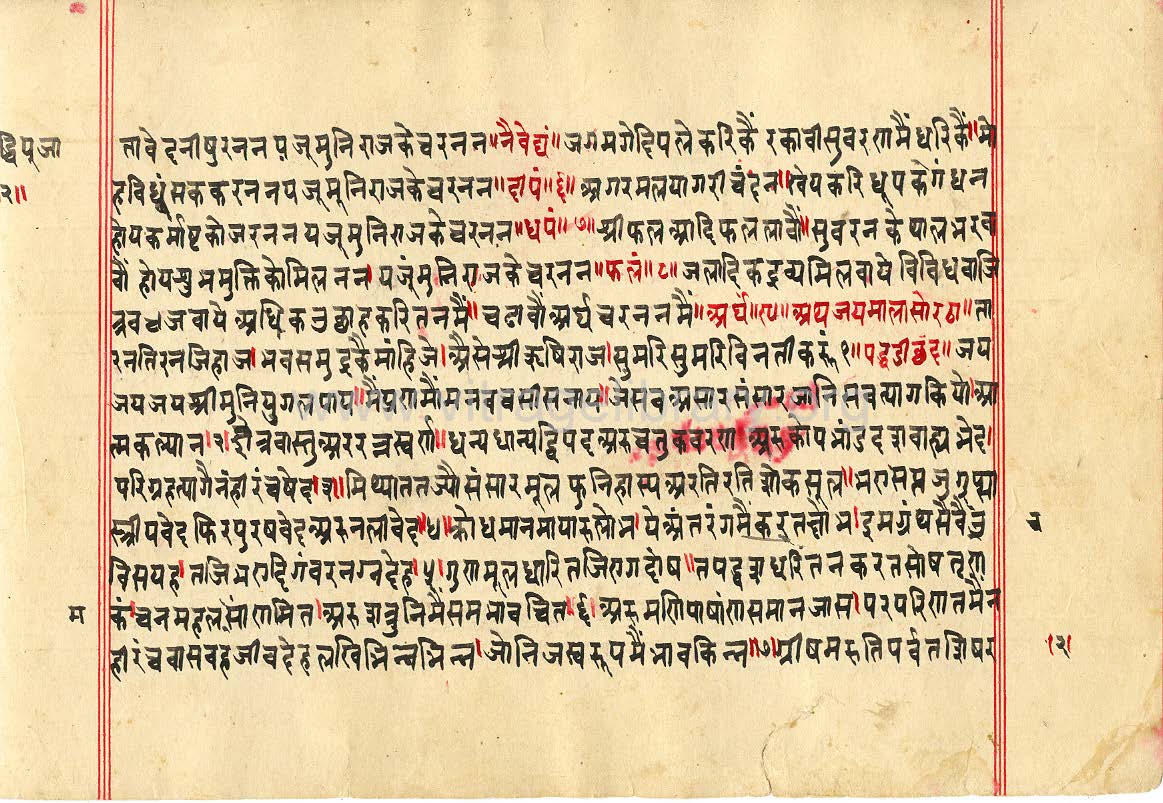 द्धिपूजा
तावेदनीषुरननपजूमुनिराजकेचरनन॥नैवेद्यं॥जगमगेदिपलेकरिकैं रकावीसुवरणमैंधरिकैं॥मो
हविध्वंसककरननपजूमूनिराजकेचरनन॥दीपं॥६॥अगरमलयागरीचंदन॥खेयकरिधूपकेगंधन
होयकर्माष्टकोजरननपजूमुनिराजकेचरनन॥धपं॥७॥श्रीफलआदिफललावौं॥सुवरनकेथालभरवा
वौं होयशुभमुक्तिकोमिलनन।पजूंमुनिराजकेचरनन॥फलं॥८॥जलादिकद्रव्यमिलवाये विविधवाजि
त्रवजवाये अधिकउछाहकरितनमैं॥चढावौंअर्घचरननमैं॥अर्घं॥९॥अथजयमालासोरठा॥ता
रनतिरनजिहाज।भवसमुद्रकैमांहिजे।अैसेश्रीऋषिराज।सुमरिसुमरिविनतीकरूं१॥पद्धडीछंद॥जय
जयजयश्रीमुनियुगलपाय।मैंप्रणमौंमनवचसीसनाय।जेसबअसारसंसारजानिसबत्यागकियो।आ
त्मकल्यान।२।क्षेत्रवास्तुअररत्नस्वर्ण॥धन्यधान्यद्विपदअरुचतुकवरण अरुकोपभांडदशवाह्यभेद।
परिग्रहत्यागैनंहीरंचषेद।३॥मिथ्याततज्यौसंसारमूल फुनिहास्यअरतिरतिशोकसूल॥भयसप्तजुगुप्सा
स्त्रीपवेद फिरपुरषवेदअरुनलीवेद।४॥क्रोधमानमायारुलोभ।येअंतरंगमैंकरुतक्षोभ।इमग्रंथसवैचउ
च
विसयह।तजिभएदिगंवरनग्नदेह।५।गुणमूलधारितजिरागदोष॥तपद्वदशधरितनकरतसोषतृण
म
कंचनमहलसांणमित।अरुशत्रुनिमैंसमभावचित।६।अरुमणिपाषांणसमानजास।परपरिणतमैंन
हीरंचवासवहजीवदेहलखिभिन्नभिन्न।जेनिजस्वरूपमैंभावकिन्न॥७॥ग्रीषमरुतिपर्वतशिषर
।२।